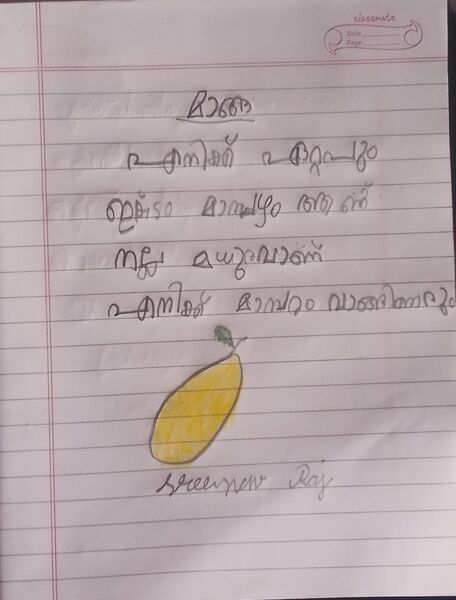 classmate
Date
Page
മാങ്ങ
എനിക്ക് ഏറ്റവും
ഇഷ്ടം മാമ്പഴം ആണ്
നല്ല മധുരവാണ്
എനിക്ക് മാമ്പഴം
Raj